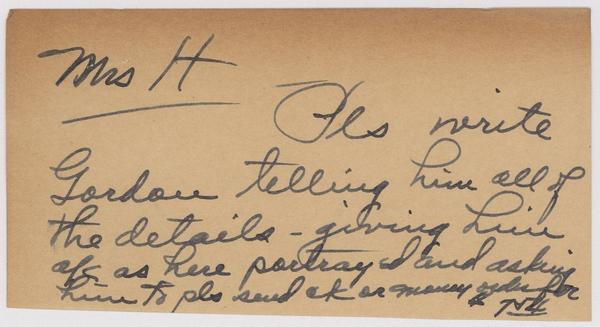 Mrs H
Pls write
Gordon telling him all of
the details - giving him
a/c as here portrayed and asking
him to pls send ck or money order for
$